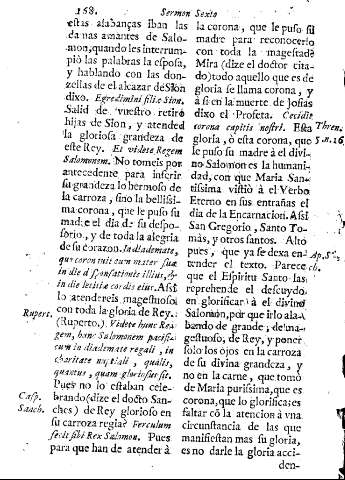 168. Sermon Sexto
estas alabanças iban las
da nas amantes de Salo-
mon, quando les interrum-
piò las palabras la esposa,
y hablando con las don-
zellas de el alcazar de Sion
dixo. Egredimini filiæ Sion.
Salid de vuestro retiro
hijas de Sion, y atended
la gloriosa grandeza de
este Rey. Et videte Regem
Salomonem. No tomeis por
antecedente para inferir
su grandeza lo hermoso de
la carroza, sino la bellissi-
ma corona, que le puso su
madre el dia de su despo-
sorio, y de toda la alegria
de su corazon. In diademate,
quo coronavit eum mater suæ
in die desponsationis illius, &
in die lætitiæ cordis eius. Assi
lo atendereis magestuoso
Rupers. con toda la gloria de Rey.
(Ruperto.) Videte hunc Re-
gem, hunc Salomonem pacifi-
cum in diademate regali, in
charitate nuptiali, qualis,
quantus, quam gloriosus sit.
Pues no lo estaban cele-
Casp. brando (dize el docto San-
Sanch. ches) de Rey glorioso en
su carroza regia? Ferculum
fecit sibi Rex Salomon. Pues
para que han de atender à
la corona, que le puso su
madre para reconocerlo
con toda la magestad?
Mira (dize el doctor cita-
do) todo aquello que es de
gloria se llama corona, y
à si en la muerte de Josias
dixo el Profeta. Cecidit
corona capitis nostri. Esta Thren.
gloria, ò esta corona, que 5. n. 16,
le puso su madre à el divi-
no Salomon es la humani-
dad, con que Maria San-
tissima vistiò à el Verbo
Eterno en sus entrañas el
dia de la Encarnacion. Assi
San Gregorio, Santo To-
màs, y otros santos. Alto
pues, que ya se dexa en- Ap. S.
tender el texto. Parece ch.
que el Espiritu Santo las
reprehende el descuydo
en glorificar à el divino
Salomon, por que irlo ala-
bando de grande, de ma-
gestuoso, de Rey, y poner
solo los ojos en la carroza
de su divina grandeza, y
no en la carne, que tomò
de Maria purissima, que es
corona, que lo glorifica; es
faltar cõ la atencion à vna
circunstancia de las que
manifiestan mas su gloria,
es no darle la gloria acci-
den-